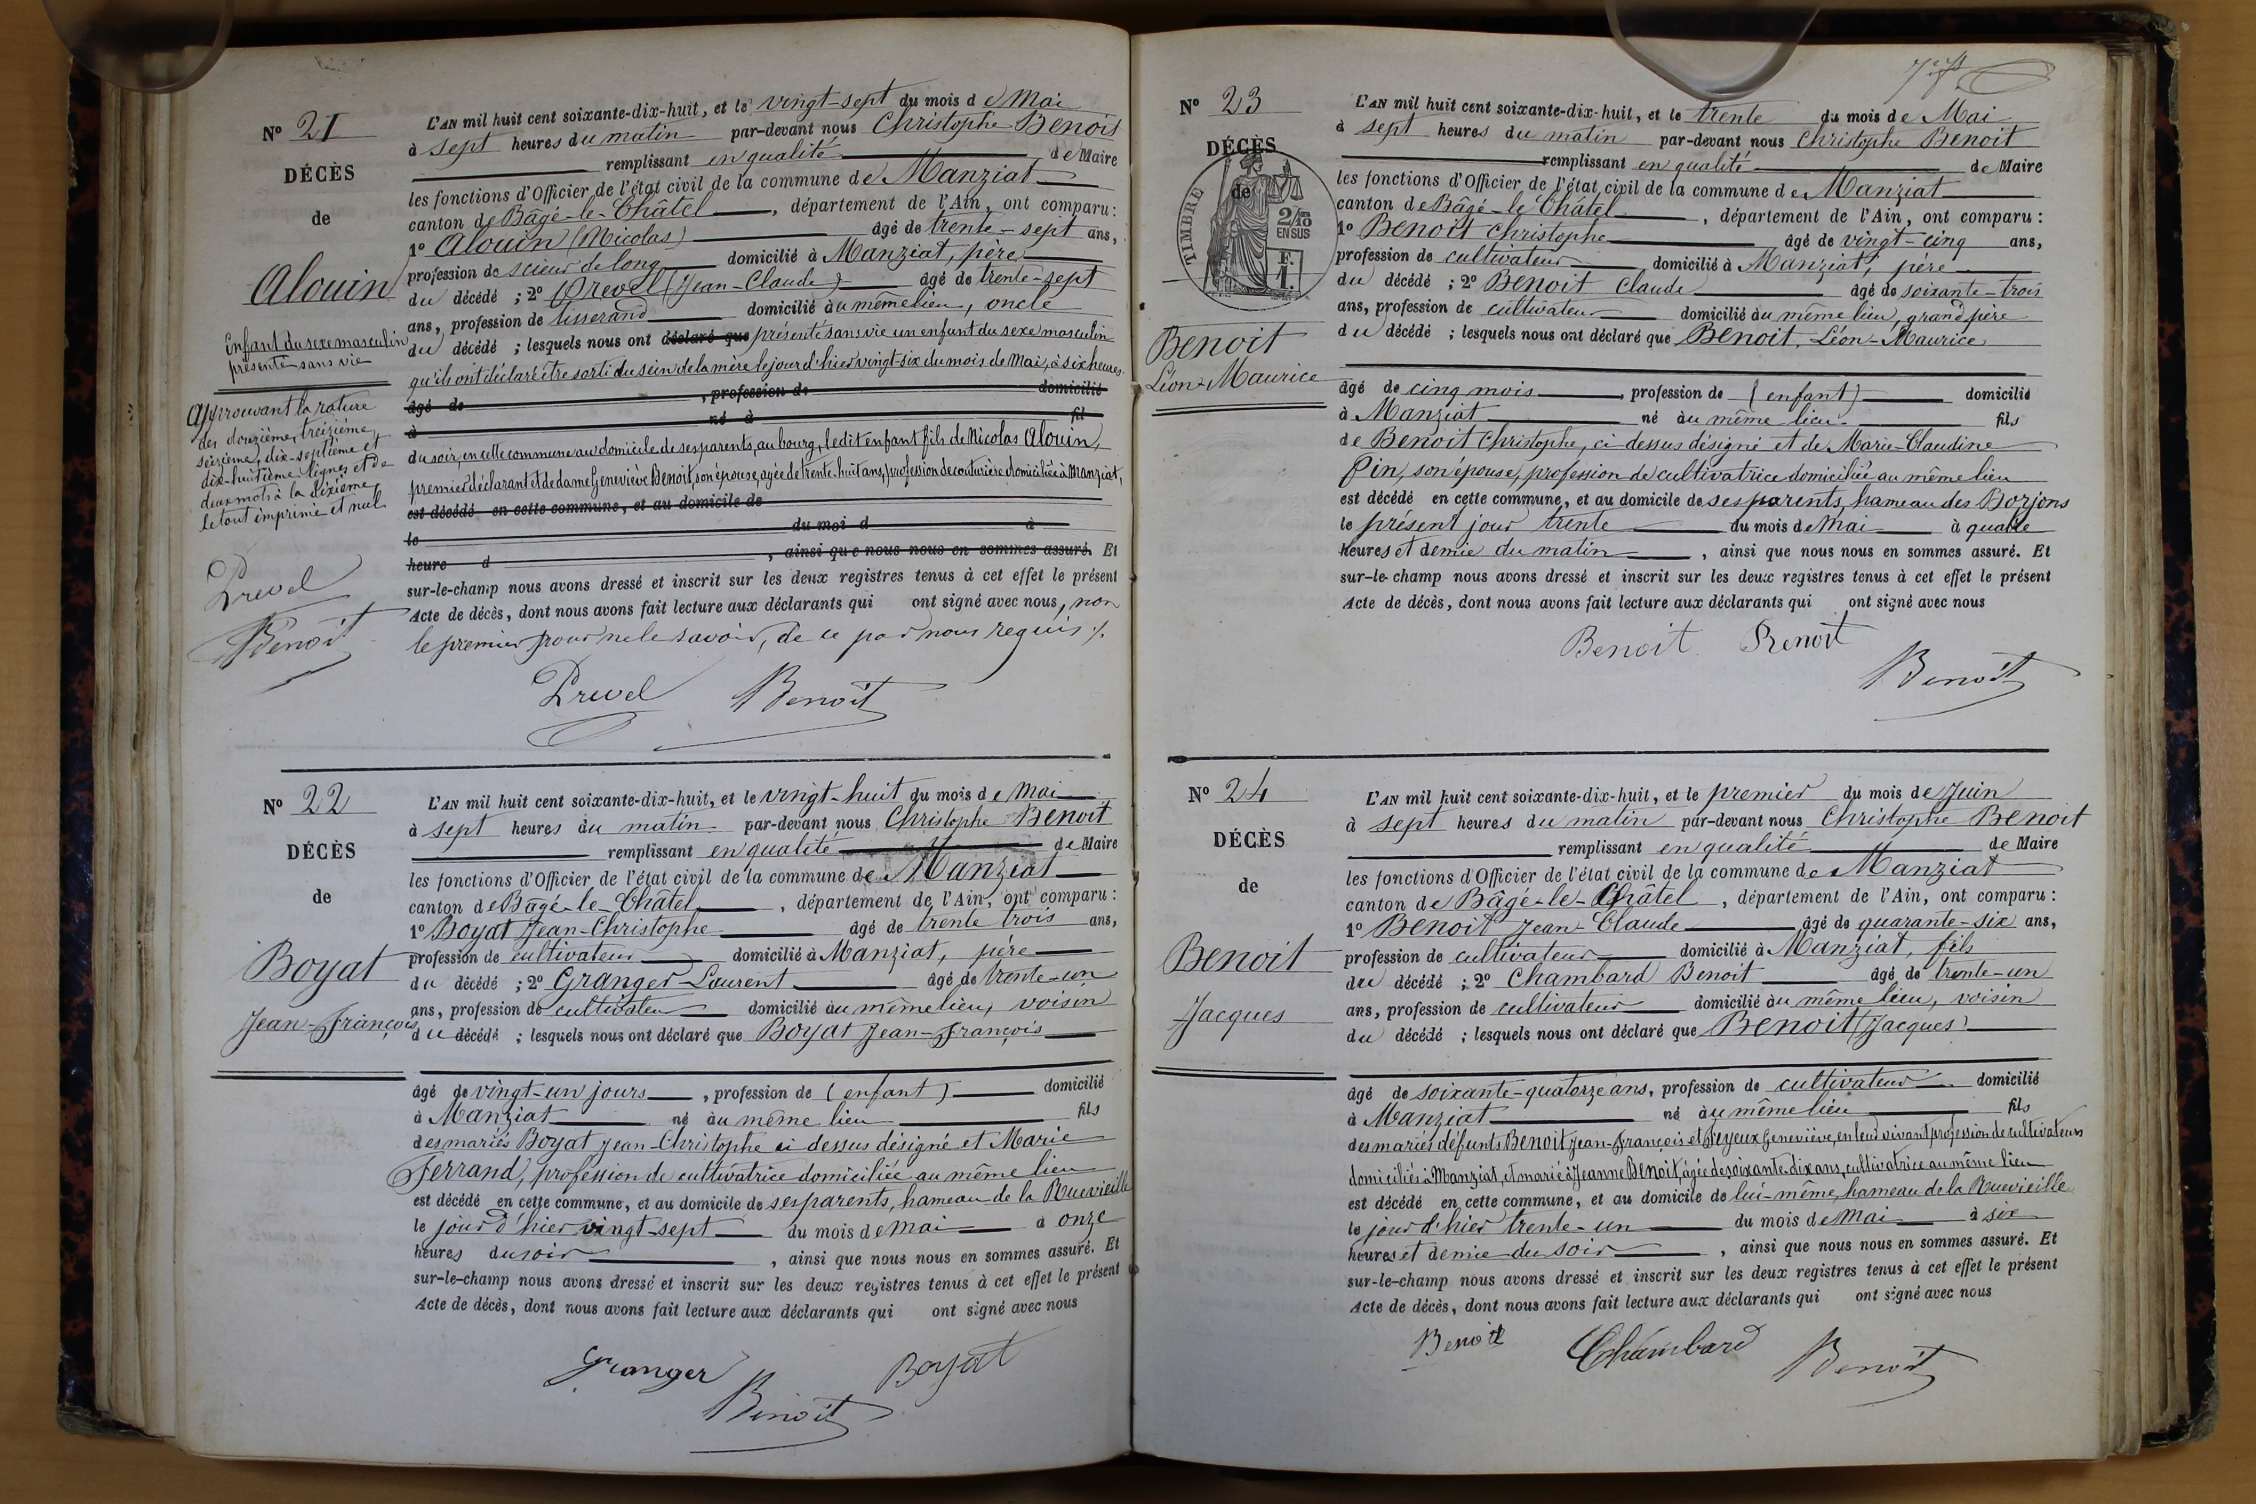 N° 21
DÉCÈS
de
Alouin
Enfant du sexe masculin
présenté sans vie
Approuvant la rature
des douzième, treizième,
seizième, dix-septième et
dix-huitième lignes et de
deux mots à la dixième,
le tout imprimé et nul
Prevel
Benoit
L'AN mil huit cent soixante-dix-huit, et le vingt-sept du mois de Mai
à sept heures du matin par-devant nous Christophe Benoit
remplissant en qualité de Maire
les fonctions d'Officier de l'état civil de la commune de Manziat
canton de Bâgé-le-Châtel, département de l'Ain, ont comparu:
1° Alouin (Nicolas) âgé de trente-sept ans,
profession de scieur de long domicilié à Manziat, père
du décédé ; 2° Prevel (Jean-Claude) âgé de trente-sept
ans, profession de tisserand domicilié au même lieu, oncle
du décédé ; lesquels nous ont déclaré que présenté sans vie un enfant du sexe masculin
qu'ils ont déclaré être sorti du sein de la mère le jour d'hier vingt-six du mois de Mai, à six heures
âgé de , profession de domicilié
à né à fil
du soir, en cette commune au domicile de ses parents, au bourg, ledit enfant fils de Nicolas Alouin,
premier déclarant et de dame Geneviève Benoit, son épouse, agée de trente-huit ans, profession de couturière domiciliée à Manziat,
est décédé en cette commune, et au domicile de
le du moi d à
heure d , ainsi que nous nous en sommes assuré. Et
sur-le-champ nous avons dressé et inscrit sur les deux registres tenus à cet effet le présent
Acte de décès, dont nous avons fait lecture aux déclarants qui ont signé avec nous, non
le premier pour ne le savoir, de ce par nous requis ./.
Prevel Benoit
N° 22
DÉCÈS
de
Boyat
Jean-François
L'AN mil huit cent soixante-dix-huit, et le vingt-huit du mois de Mai
à sept heures du matin par-devant nous Christophe Benoit
remplissant en qualité de Maire
les fonctions d'Officier de l'état civil de la commune de Manziat
canton de Bâgé-le-Châtel, département de l'Ain, ont comparu:
1° Boyat Jean-Christophe âgé de trente trois ans,
profession de cultivateur domicilié à Manziat, père
du décédé ; 2° Granger Laurent âgé de trente-un
ans, profession de cultivateur domicilié au même lieu, voisin
du décédé ; lesquels nous ont déclaré que Boyat Jean-François
âgé de vingt-un jours, profession de (enfant) domicilié
à Manziat né au même lieu fils
des mariés Boyat Jean-Christophe ci dessus désigné et Marie
Ferrand, profession de cultivatrice domiciliée au même lieu
est décédé en cette commune, et au domicile de ses parents, hameau de la Ruevieille
le jour d'hier vingt-sept du mois de Mai à onze
heures du soir, ainsi que nous nous en sommes assuré. Et
sur-le-champ nous avons dressé et inscrit sur les deux registres tenus à cet effet le présent
Acte de décès, dont nous avons fait lecture aux déclarants qui ont signé avec nous
Granger Boyat
Benoit
N° 23
DÉCÈS
de
TIMBRE
2/10 EN SUS
F. 1.
Benoit
Léon-Maurice
L'AN mil huit cent soixante-dix-huit, et le trente du mois de Mai
à sept heures du matin par-devant nous Christophe Benoit
remplissant en qualité de Maire
les fonctions d'Officier de l'état civil de la commune de Manziat
canton de Bâgé-le Châtel, département de l'Ain, ont comparu:
1° Benoit Christophe âgé de vingt-cinq ans,
profession de cultivateur domicilié à Manziat, père
du décédé ; 2° Benoit Claude âgé de soixante-trois
ans, profession de cultivateur domicilié au même lieu, grand père
du décédé ; lesquels nous ont déclaré que Benoit, Léon-Maurice
âgé de cinq mois, profession de (enfant) domicilié
à Manziat né au même lieu fils
de Benoit Christophe, ci dessus désigné et de Marie-Claudine
Pin, son épouse, profession de cultivatrice domiciliée au même lieu
est décédé en cette commune, et au domicile de ses parents, hameau des Borjons
le présent jour trente du mois de Mai à quatre
heures et demie du matin, ainsi que nous nous en sommes assuré. Et
sur-le-champ nous avons dressé et inscrit sur les deux registres tenus à cet effet le présent
Acte de décès, dont nous avons fait lecture aux déclarants qui ont signé avec nous
Benoit Benoit
Benoit
N° 24
DÉCÈS
de
Benoit
Jacques
L'AN mil huit cent soixante-dix-huit, et le premier du mois de Juin
à sept heures du matin par-devant nous Christophe Benoit
remplissant en qualité de Maire
les fonctions d'Officier de l'état civil de la commune de Manziat
canton de Bâgé-le-Châtel, département de l'Ain, ont comparu:
1° Benoit Jean-Claude âgé de quarante-six ans,
profession de cultivateur domicilié à Manziat, fils
du décédé ; 2° Chambard Benoit âgé de trente-un
ans, profession de cultivateur domicilié au même lieu, voisin
du décédé ; lesquels nous ont déclaré que Benoit (Jacques)
âgé de soixante-quatorze ans, profession de cultivateur domicilié
à Manziat né au même lieu fils
des mariés défunts Benoit Jean-François et Feyeux Geneviève, en leur vivant profession de cultivateurs
domiciliés à Manziat, et marié à Jeanne Benoit, âgée de soixante-dix ans, cultivatrice au même lieu
est décédé en cette commune, et au domicile de lui-même, hameau de la Ruevieille
le jour d'hier trente-un du mois de Mai à six
heures et demie du soir, ainsi que nous nous en sommes assuré. Et
sur-le-champ nous avons dressé et inscrit sur les deux registres tenus à cet effet le présent
Acte de décès, dont nous avons fait lecture aux déclarants qui ont signé avec nous
Benoit Chambard Benoit